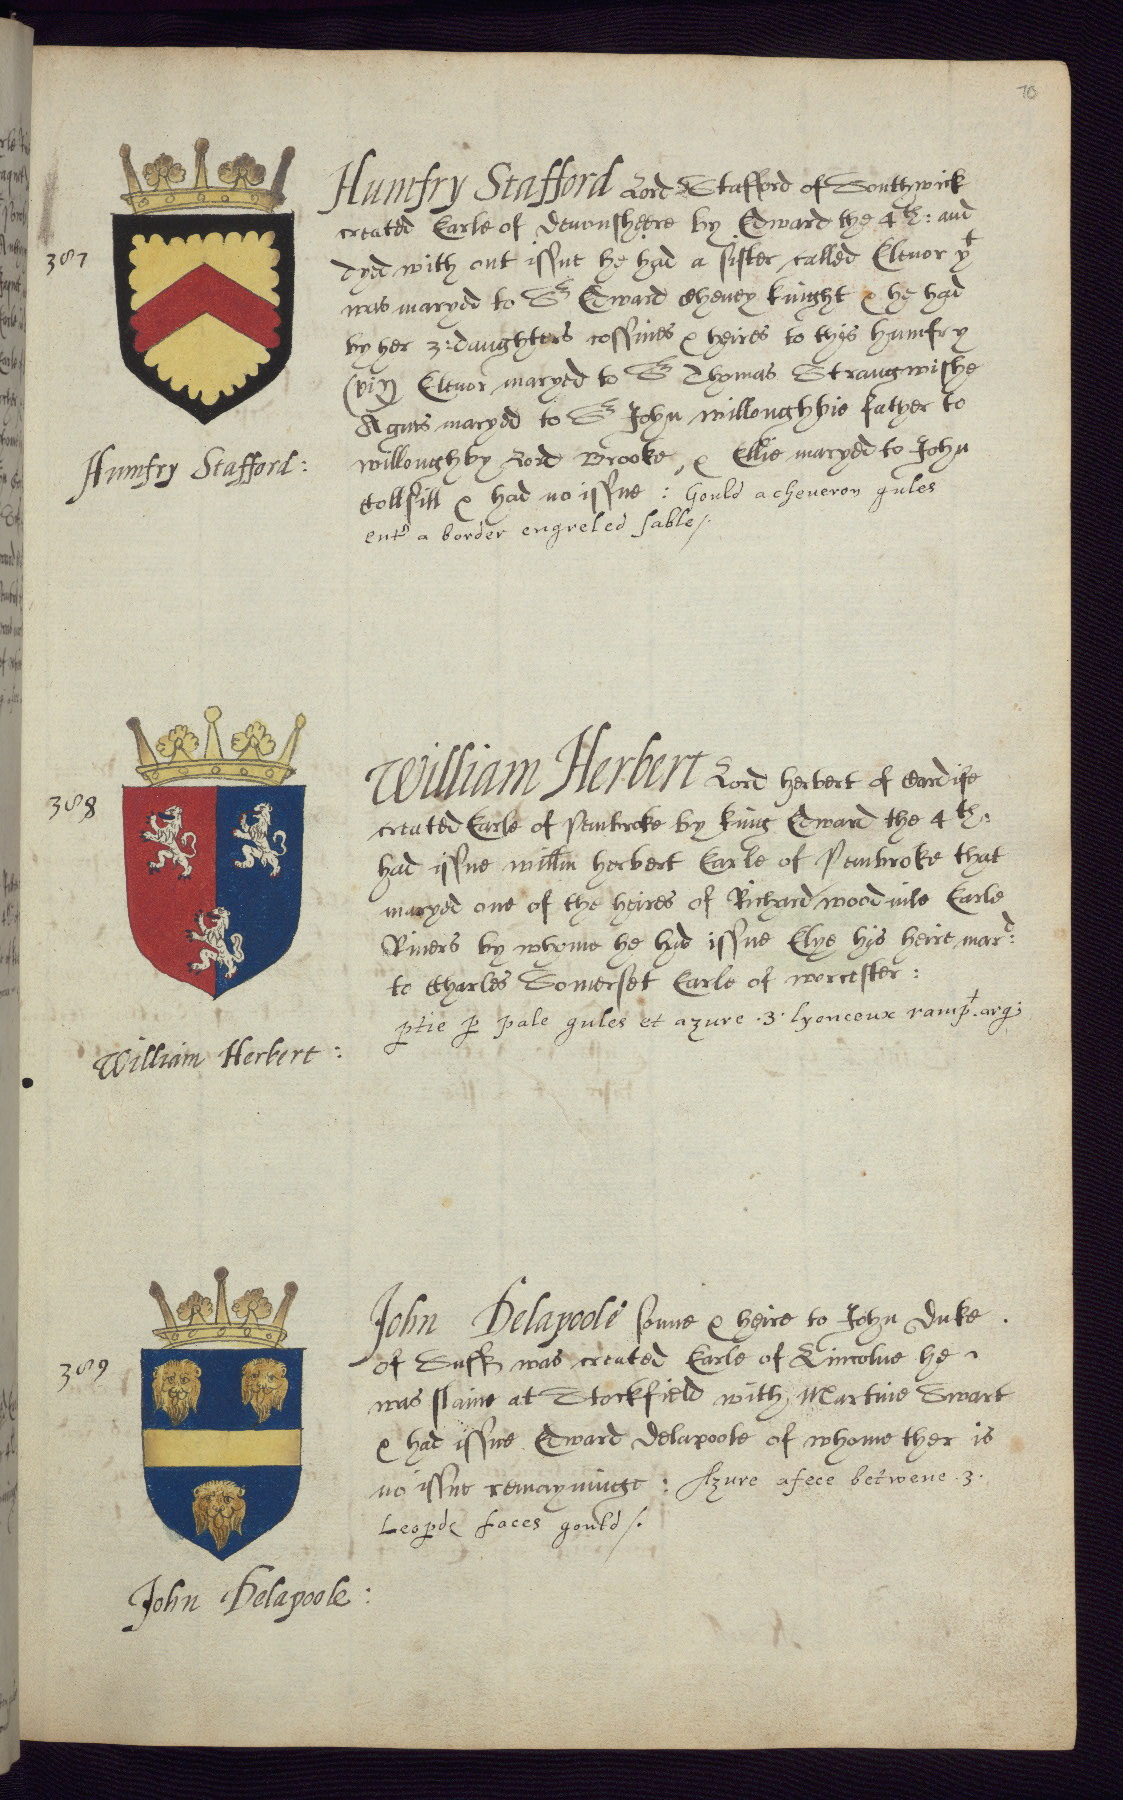 70
387
Humfry Stafford Lord Stafford of Southwick
created Earle of devonsheere by Edward the 4th: and
dyed with out issue he had a sister called Elenor yt
was maryed to Sr Edward Cheney knight & he had
by her 3: daughters cossines & heires to this humfry
(viz) Elenor maryed to Sr Thomas Strangwishe
Agnes maryed to Sr John willoughbie father to
willoughby Lord Brooke, & Ellie maryed to John
Collsill & had no issue : Gould a cheveron gules
entr a border engreled sable/.
Humfry Stafford:
388
William Herbert Lord herbert of Cardife
created Earle of Penbroke by king Edward the 4th:
had issue willm herbert Earle of Penbroke that
maryed one of the heires of Richard wooduile Earle
Riuers by whome he had issue Elye his heire mard:
to Charles Somerset Earle of worcester:
ptie p pale gules et azure .3. lyonceux rampt. arg:
William Herbert:
389
John Delapoole sonne & heire to John Duke
of Suff was created Earle of Lincolne he
was slaine at Stockfield with Martine Swart
& had issue Edward delapoole of whome ther is
no issue remayninge : Azure a fece betwene .3.
Leopdes faces gould/.
John Delapoole: